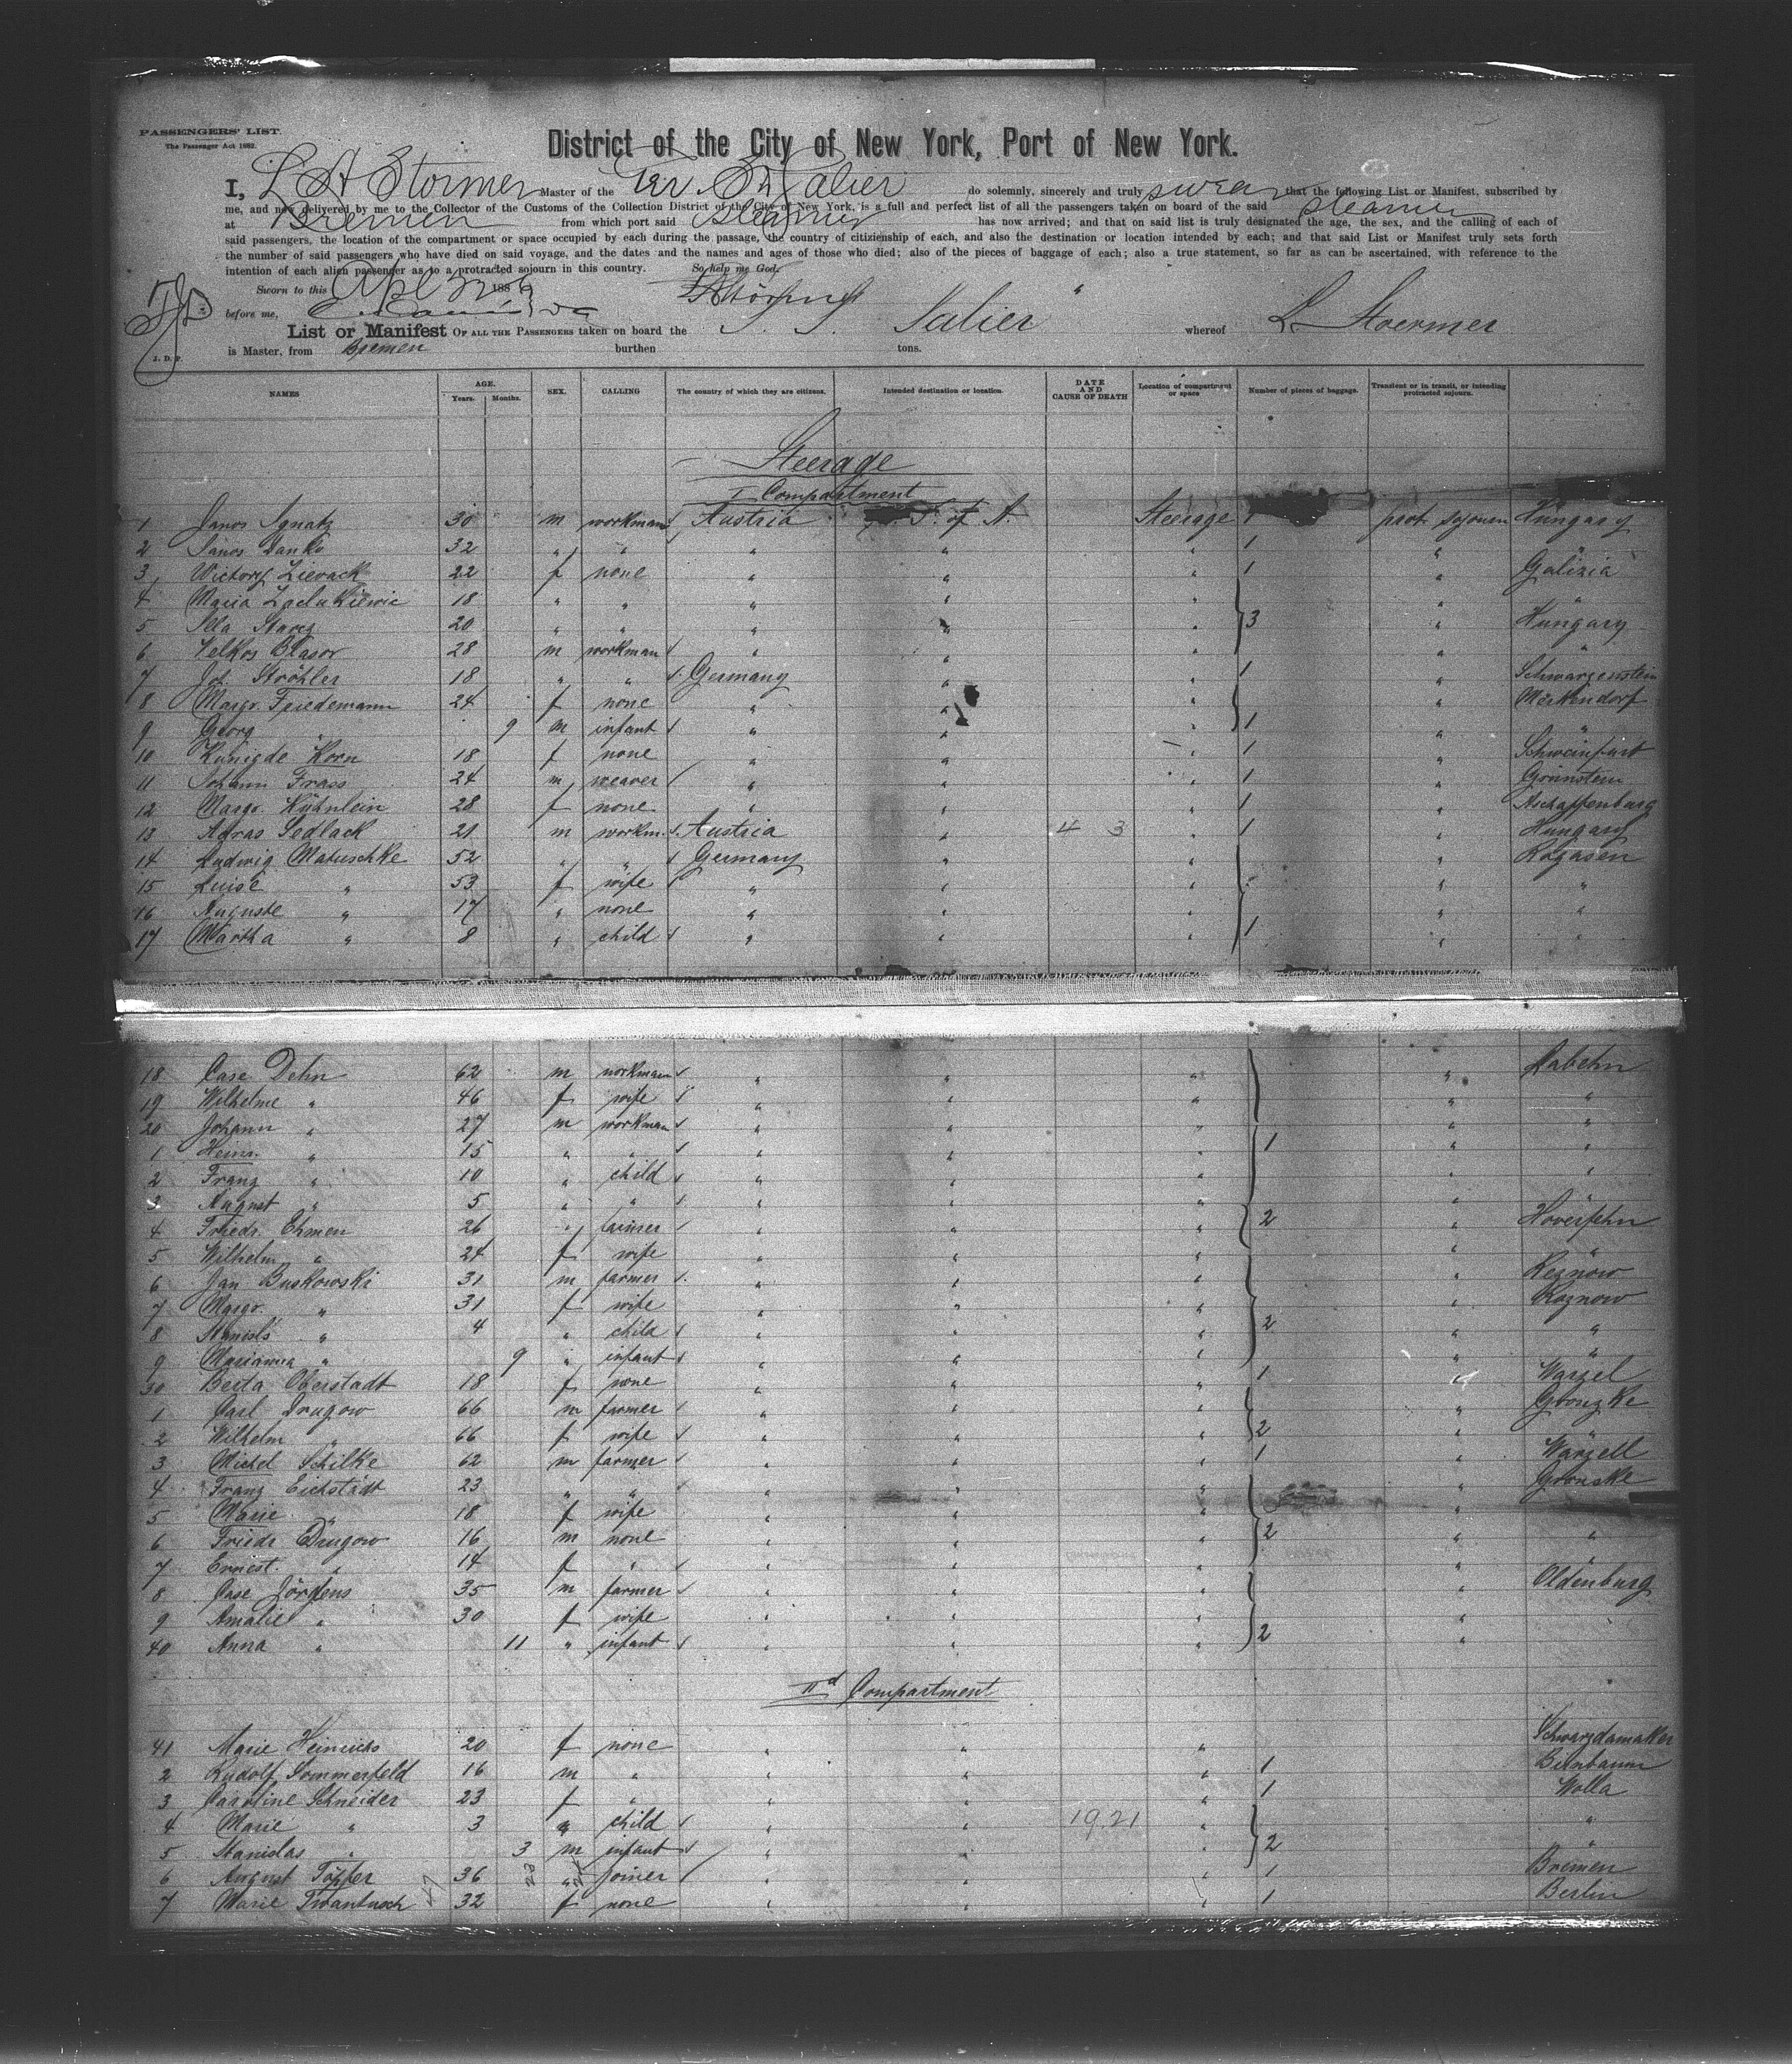 PASSENGERS' LIST.
The Passenger Act 1882.
District of the City of New York, Port of New York.
I, L A Stormer Master of the Ger. Str Salier do solemnly, sincerely and truly swear that the following List or Manifest, subscribed by
me, and now delivered by me to the Collector of the Customs of the Collection District of the City of New York, is a full and perfect list of all the passengers taken on board of the said steamer
at Bremen from which port said steamer has now arrived; and that on said list is truly designated the age, the sex, and the calling of each of
said passengers, the location of the compartment or space occupied by each during the passage, the country of citizenship of each, and also the destination or location intended by each; and that said List or Manifest truly sets forth
the number of said passengers who have died on said voyage, and the dates and the names and ages of those who died; also of the pieces of baggage of each; also a true statement, so far as can be ascertained, with reference to the
intention of each alien passenger as to a protracted sojourn in this country. So help me God.
Sworn to this Apl 188
before me,
List or Manifest OF ALL THE PASSENGERS taken on board the S. S. Salier whereof L. Stoermer
J. D. P.
is Master, from Bremen burthen tons.
NAMES AGE. Years. Months. SEX. CALLING The country of which they are citizens. Intended destination or location. DATE AND CAUSE OF DEATH Location of compartment or space Number of pieces of baggage. Transient or in transit, or intending protracted sojourn.
Steerage
I Compartment
1 Janos Ignatz 30 m workman Austria S. of A. Steerage 1 prot sojourn Hungary
2 Janos Danko 32 " " " " " 1 " "
3 Wictory Lievack 22 f none " " " 1 " Galizia
4 Maria 18 " " " " " " "
5 Ella 20 " " " " " 3 " Hungary
6 Velkos Blasor 28 m workman " " " " "
7 Jos. Ströhler 18 " " Germany " " 1 " Schwarzenstein
8 Margr. Friedemann 24 f none " " " " Merkendorf
9 Georg " 9 m infant " " " 1 " "
10 Kunigde Korn 18 f none " " " 1 " Schweinfurt
11 Johann Frass 24 m weaver " " " 1 " Grünstein
12 Margr. Kühnlein 28 f none " " " 1 " Aschaffenburg
13 Adras Sedlack 21 m workm. Austria " 4 3 " 1 " Hungary
14 Ludwig Matuschke 52 " " Germany " " " Rogasen
15 Luise " 53 f wife " " " " "
16 Auguste " 17 " none " " " " "
17 Martha " 8 " child " " " 1 " "
18 Case Dehn 62 m workman " " " " Labehn
19 Wilhelme " 46 f wife " " " " "
20 Johann " 27 m workman " " " " "
1 Heinr. " 15 " " " " " 1 " "
2 Franz " 10 " child " " " " "
3 August " 5 " " " " " "
4 Friedr. Ehmen 26 " farmer " " " 2 " Hoverfehn
5 Wilhelm " 24 f wife " " " "
6 Jan Buskowski 31 m farmer " " " " Reznow
7 Margr. " 31 f wife " " " Roznow
8 Stanisls " 4 " child " " " 2 " "
9 Marianna " 9 " infant " " " " "
30 Berta Oberstadt 18 f none " " " 1 " Warzel
1 Carl Drugow 66 m farmer " " " " Gronzke
2 Wilhelm " 66 f wife " " " 2 "
3 Michel Schilke 62 m farmer " " " 1 " Warzell
4 Franz Eichstädt 23 " " " " " " Gronske
5 Marie " 18 f wife " " " " "
6 Friedr Drugow 16 m none " " " 2 " "
7 Ernest. " 14 f " " " " "
8 Case Jörgens 35 m farmer " " " " Oldenburg
9 Amalie " 30 f wife " " " "
40 Anna " 11 " infant " " " 2 "
IId Compartment
41 Marie Heinrichs 20 f none " " " Schwarzdamaker
2 Rudolf Sommerfeld 16 m " " " " 1 Birnbaum
3 Caroline Schneider 23 f " " " " 1 Wolla
4 Marie " 3 " child " " 19.21 " "
5 Stanislas " 3 m infant " " " 2 "
6 August Töpfer 36 " joiner " " " 1 Bremen
7 Marie 32 f none " " " 1 Berlin